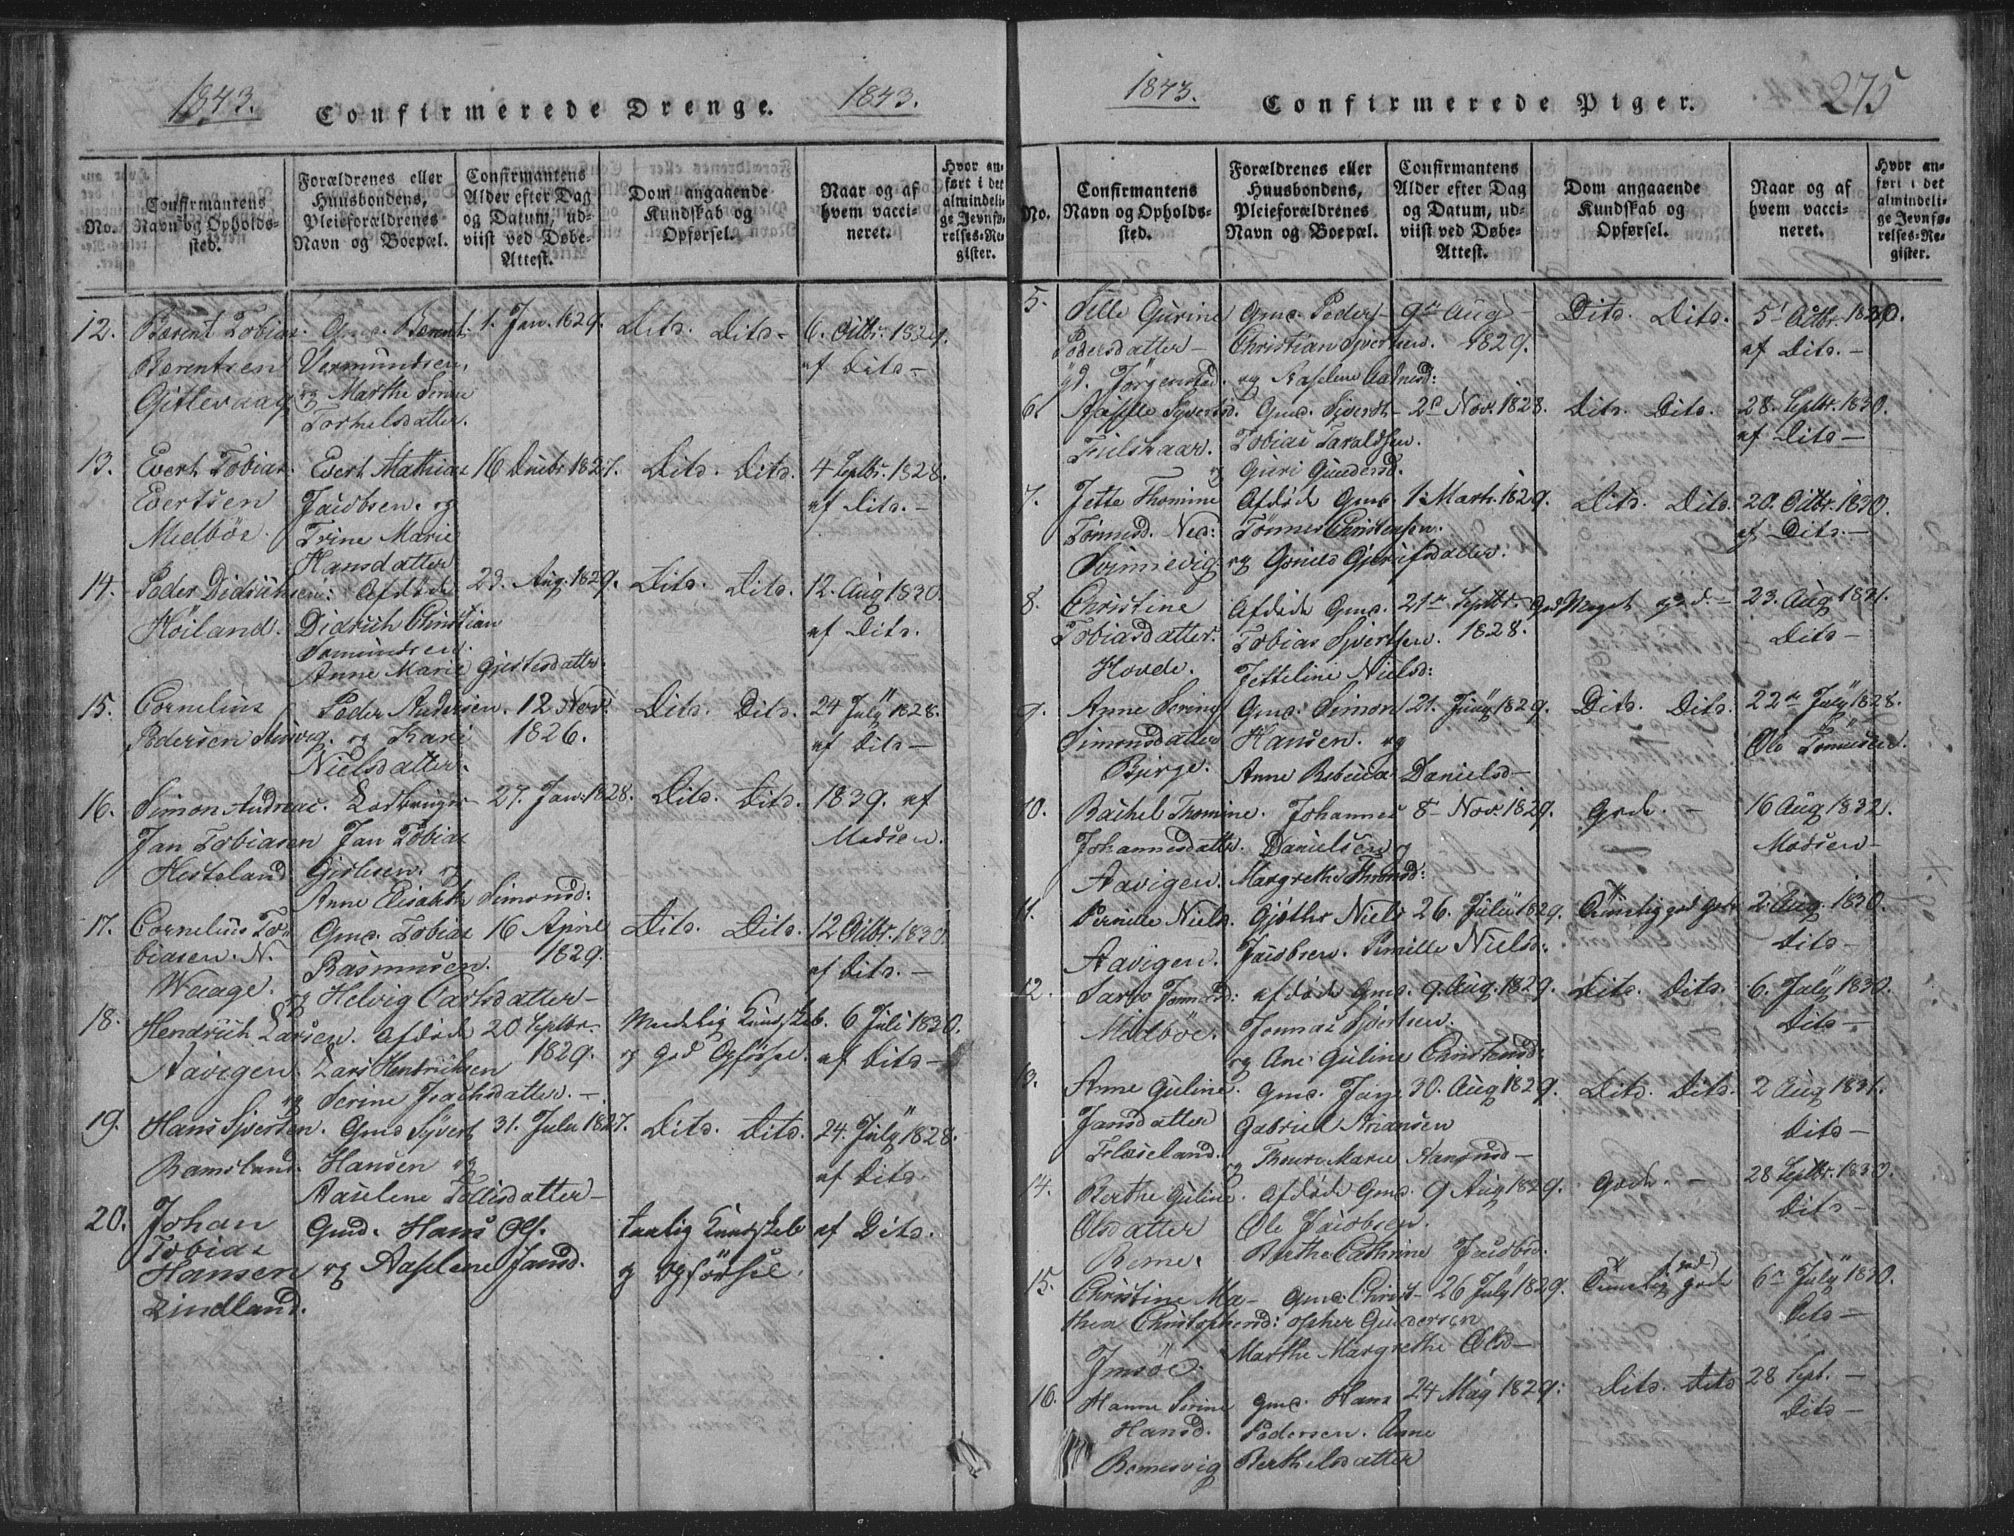 1843.
Confirmerede Drenge.
1843.
No.
Confirmantens Navn og Opholdssted.
Forældrenes eller Huusbondens, Pleieforældrenes Navn og Boepæl.
Confirmantens Alder efter Dag og Datum, udviist ved Døbe-Attest.
Dom angaaende Kundskab og Opførsel.
Naar og af hvem vaccineret.
Hvor anført i det almindelige Jevnførelses-Register.
12. Berent Tobias Gmd. Bernt 1. Jan. 1829. Dito. Dito- 6. Octbr. 1829.
Berentsen Vermundsen, af Dito-
Gitlevaag og Marthe
Torkelsdatter.
13. Evert Tobias Evert Mathias 16 Decbr 1827. Dito. Dito. 4 Septbr. 1828.
Evertsen Jacobsen. og af Dito.-
Medböe. Trine Marie
Hansdatter
14. Peder Didrichsen. Afdöde 23. Aug. 1829. Dito. Dito. 12. Aug 1830.
Höiland. Didrich Christian af Dito.
Anne Marie Gjertsdatter.
15. Cornelius Peder Andersen. 12 Novb. Dito. Dito. 24 July 1828.
Pedersen og Kari 1826. af Dito-
Nielsdatter.
16. Simon Andreas. 27. Jan. 1828. Dito. Dito. 1839. af
Jan Tobiasen Jan Tobias Madsen.
Hesteland og
Anne Elisabeth Simonsd:
17. Cornelius To- Gmd. Tobias 16 April Dito. Dito. 12 Octbr. 1830.
biasen. N. Rasmusen. 1829. af Dito.-
Waage. og Helvig Carlsdatter-
18. Hendrich Larsen. Afdöde 20 Septbr. Maadelig Kundskab. 6 Juli 1830.
Aavigen. Lars Hendrichsen 1829. og god Opførsel. af Dito-
og Serine
19. Hans Sjversen. Gmd Syvert 31. July 1827. Dito. Dito. 24. July 1828.
Ramsland. Hansen og af Dito.
Aaselene Tollisdatter-
20. Johan Gmd. Hans Ols. taalig Kundskab af Dito.
Tobias og Aaselene Jansd. og Opførsel.
Hansen
Lindland.
1843.
Confirmerede Piger.
275
No.
Confirmantens Navn og Opholdssted.
Forældrenes eller Huusbondens, Pleieforældrenes Navn og Boepæl.
Confirmantens Alder efter Dag og Datum, udviist ved Døbe-Attest.
Dom angaaende Kundskab og Opførsel.
Naar og af hvem vaccineret.
Hvor anført i det almindelige Jevnførelses-Register.
5. Sille Gurine Gmd. Peder 9de Aug Dito. Dito. 5. Octbr. 1830.
Pedersdatter- Christian Sjvertsen. 1829. af Dito.-
og Aaselene
6. Syvertsd. Gmd. Sivert 2d Nov. 1828. Dito. Dito. 28. Septbr. 1830.
Fielskaar. Tobias Taraldsen. af Dito-
og Guri Gundersd.
7. Jette Thomine Afdöde Gmd 1. Marts. 1829. Dito. Dito. 20. Octbr. 1830.
Tönnesd. Ned: Tönnes Christensen. af Dito.-
Svinnevig og
8. Christine Afdöde Gmd. 21de Septbr. Meget god.- 23. Aug 1831.
Tobiasdatter. Tobias Sjvertsen. 1828. Dito-
Hovde. Jetteline Nielsd:
9. Anne Gmd. Simon 21. 1829. Dito. Dito. 22de July 1828.
Simonsdatter Hansen. og Ole Tönnesen.
Bjerge. Anne Rebecca Danielsd-
10. Rachel Thomine. Johannes 8- Nov. 1829. Gode.- 16 Aug 1832.
Johannesdatter. Danielsen og Madsen-
Aavigen. Margrethe
11. Pernille Niels. Niels 26. July 1829. 2. Aug. 1830.
Aavigen. Jacobsen. Pernille Nielsd: Dito-
12. Sara afdöde Gmd. 9. Aug. 1829. Dito. Dito. 6. July 1830.
Midböe. Dito-
og Ane Guline Christensd:
13. Anne Guline. Gmd. Jan 30. Aug 1829. Dito. Dito. 2 Aug 1831.
Jansdatter Gabriel Dito-
Fleseland. og Marie
14. Berthe Guline. Afdöde Gmd. 9 Aug 1829. Gode.- 28 Septbr. 1830.
Olsdatter Ole Jacobsen. Dito-
Berthe Cathrine Jacobsd:
15. Christine Ma- Gmd. Christ- 26 July 1829. 6te July 1830.
thea Christophersd: opher Gundersen Dito-
Imsöe. Marthe Margrethe Olsd-
16. Hanne Serine Gmd. Hans 24 May 1829. Dito. Dito 28 Sept.-
Hansd. Pedersen. Anne Dito-
Berthelsdatter